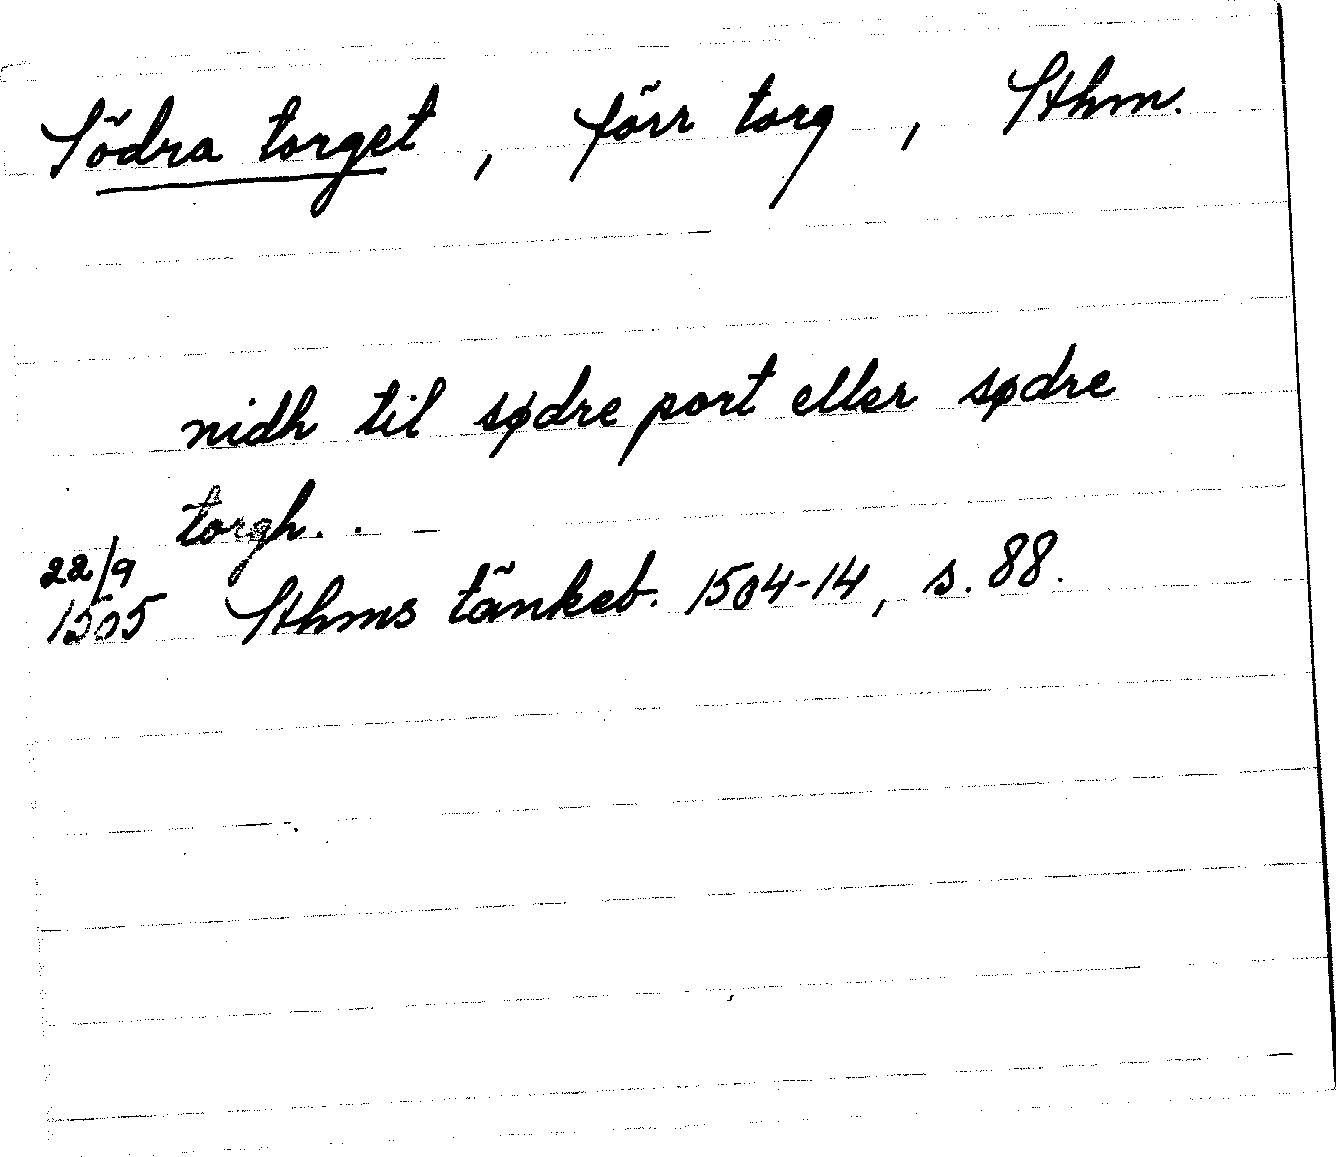 Södra torget, förr torg, Sthm.
nidh til sødre port eller sødre
torgh. . –
22/9
1505 Sthms tänkeb. 1504-14, s. 88.